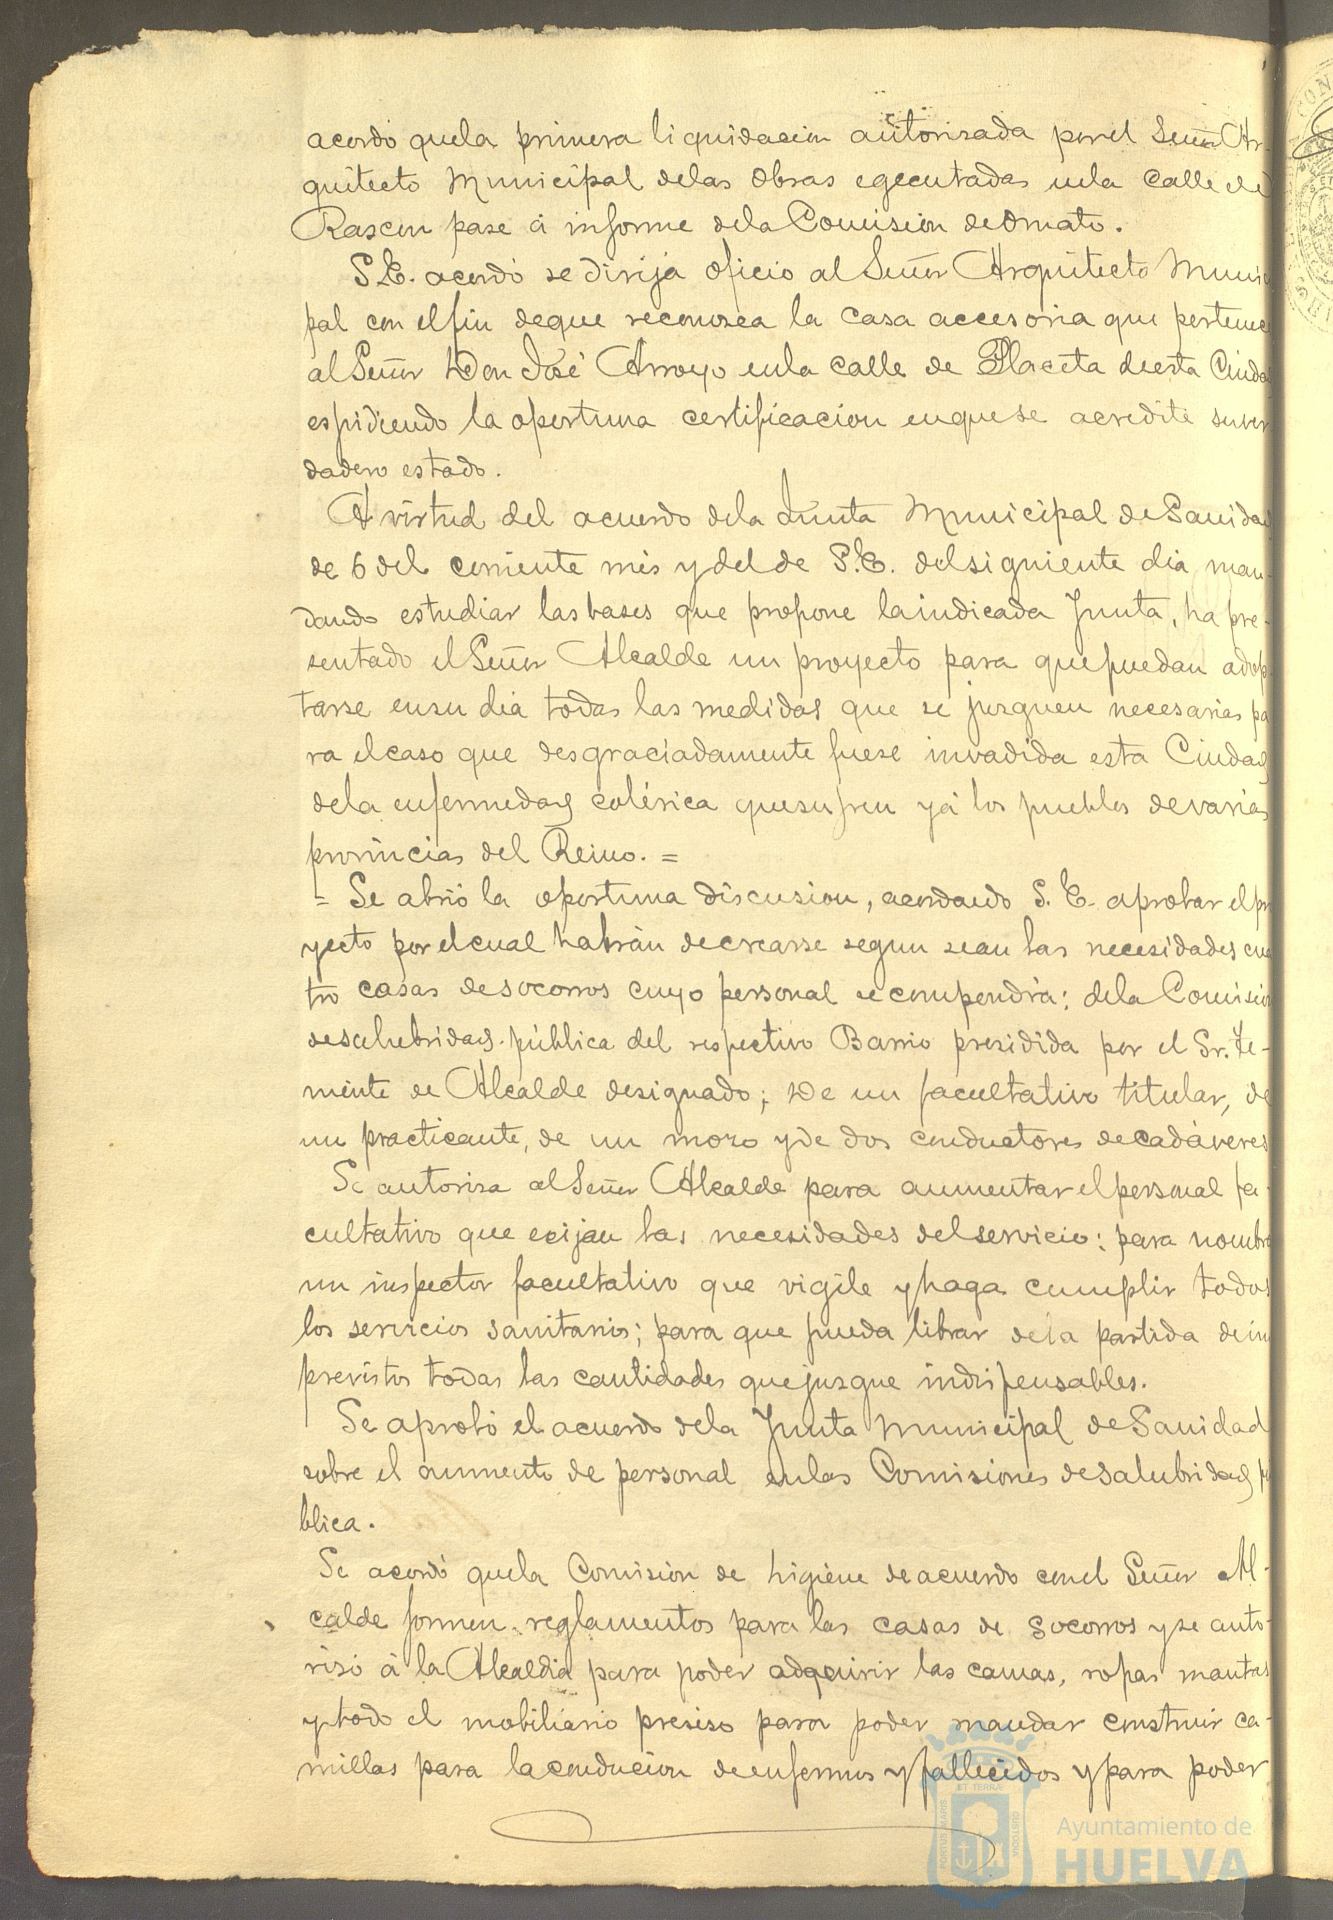 acordó quela primera liquidacion autorisada porel Señor Ar-
quitecto Municipal delas obras egecutadas enla calle del
Rascon pase á informe dela Comision deOrnato.
S.E. acordó se dirija oficio al Señor Arquitecto Munici
pal con elfin deque reconosca la casa accesoria que pertenece
alSeñor Don José Arroyo enla calle de Placeta deesta Ciudad
espidiendo la oportuna certificacion enquese acredite suver
dadero estado.
A virtud del acuerdo dela Junta Municipal deSanidad
de 6 del corriente mes ydel de S.E. delsiguiente dia man-
dando estudiar lasbases que propone laindicada Junta, ha pre-
sentado elSeñor Alcalde un proyecto para quepuedan adop
tarse ensu dia todas las medidas que se jusguen necesarias pa
ra elcaso que desgraciadamente fuese invadida esta Ciudad
dela enfermedad colérica quesufren yá los pueblos devarias
provincias del Reino. =
= Se abrió la oportuna discusion, acordando S. E. aprobar elpro
yecto por elcual habrán decrearse segun sean las necesidades cua
tro casas desocorros cuyo personal se compondrá: dela Comision
desalubridad pública del respectivo Barrio presidida por el Sr. Te-
niente de Alcalde designado; De un facultativo titular, de
un practicante, de un moro yde dos conductores decadáveres
Se autorisa alSeñor Alcalde para aumentar elpersonal fa-
cultativo que ecijan las necesidades delservicio: para nombrar
un inspector facultativo que vigile yhaga cumplir todos
los servicios sanitarios; para que pueda librar dela partida deim
previstos todas las cantidades quejusgue indispensables.
Se aprobó elacuerdo dela Junta Municipal deSanidad
sobre el aumento de personal enlas Comisiones desalubridad pú
blica.
Se acordó quela Comision de higiene deacuerdo conel Señor Al-
calde formen reglamentos para las casas de socorros yse auto-
risó á la Alcaldia para poder adquirir las camas, ropas mantas
ytodo el mobiliario presiso para poder mandar construir ca-
millas para laconducion deenfermos yfallecidos ypara poder
Ayuntamiento de
HUELVA